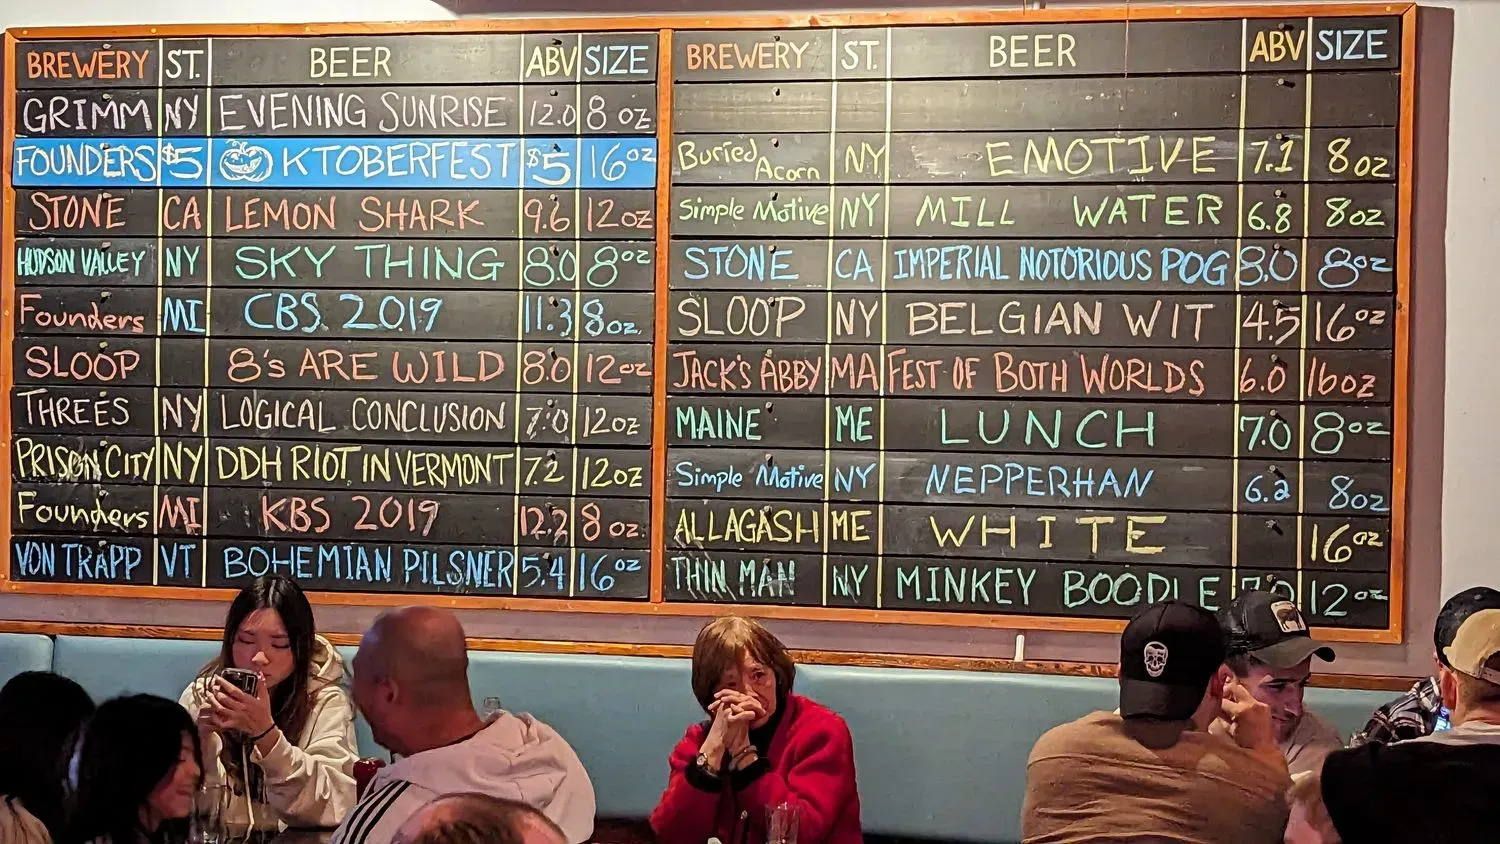 BREWERY ST. BEER ABV SIZE
GRIMM NY EVENING SUNRISE 12.0 8 oz
FOUNDERS $5 KTOBERFEST $5 16oz
STONE CA LEMON SHARK 9.6 12oz
HUDSON VALLEY NY SKY THING 8.0 8oz
Founders MI CBS 2019 11.3 8oz.
SLOOP 8's ARE WILD 8.0 12oz
THREES NY LOGICAL CONCLUSION 7.0 12oz
PRISON CITY NY DDH RIOT IN VERMONT 7.2 12oz
Founders MI KBS 2019 12.2 8 oz.
VON TRAPP VT BOHEMIAN PILSNER 5.4 16oz
BREWERY ST. BEER ABV SIZE
Buried Acorn NY EMOTIVE 7.1 8oz
Simple Motive NY MILL WATER 6.8 8oz
STONE CA IMPERIAL NOTORIOUS POG 8.0 8oz
SLOOP NY BELGIAN WIT 4.5 16oz
JACK'S ABBY MA FEST OF BOTH WORLDS 6.0 16oz
MAINE ME LUNCH 7.0 8oz
Simple Motive NY NEPPERHAN 6.2 8oz
ALLAGASH ME WHITE 16oz
THIN MAN NY MINKEY BOODLE 7.0 12oz